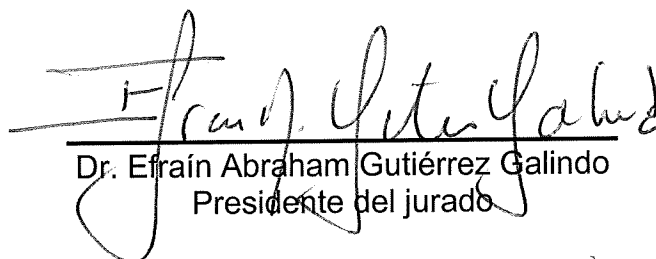 Dr. Efraín Abraham Gutiérrez Galindo
Presidente del jurado